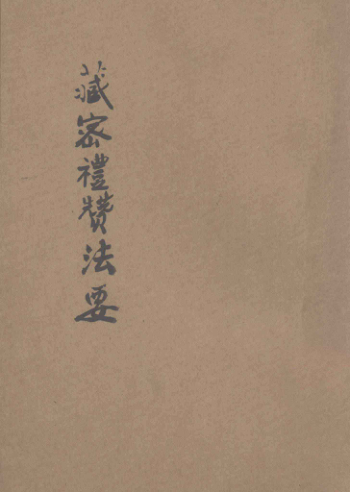 藏密禮贊法要